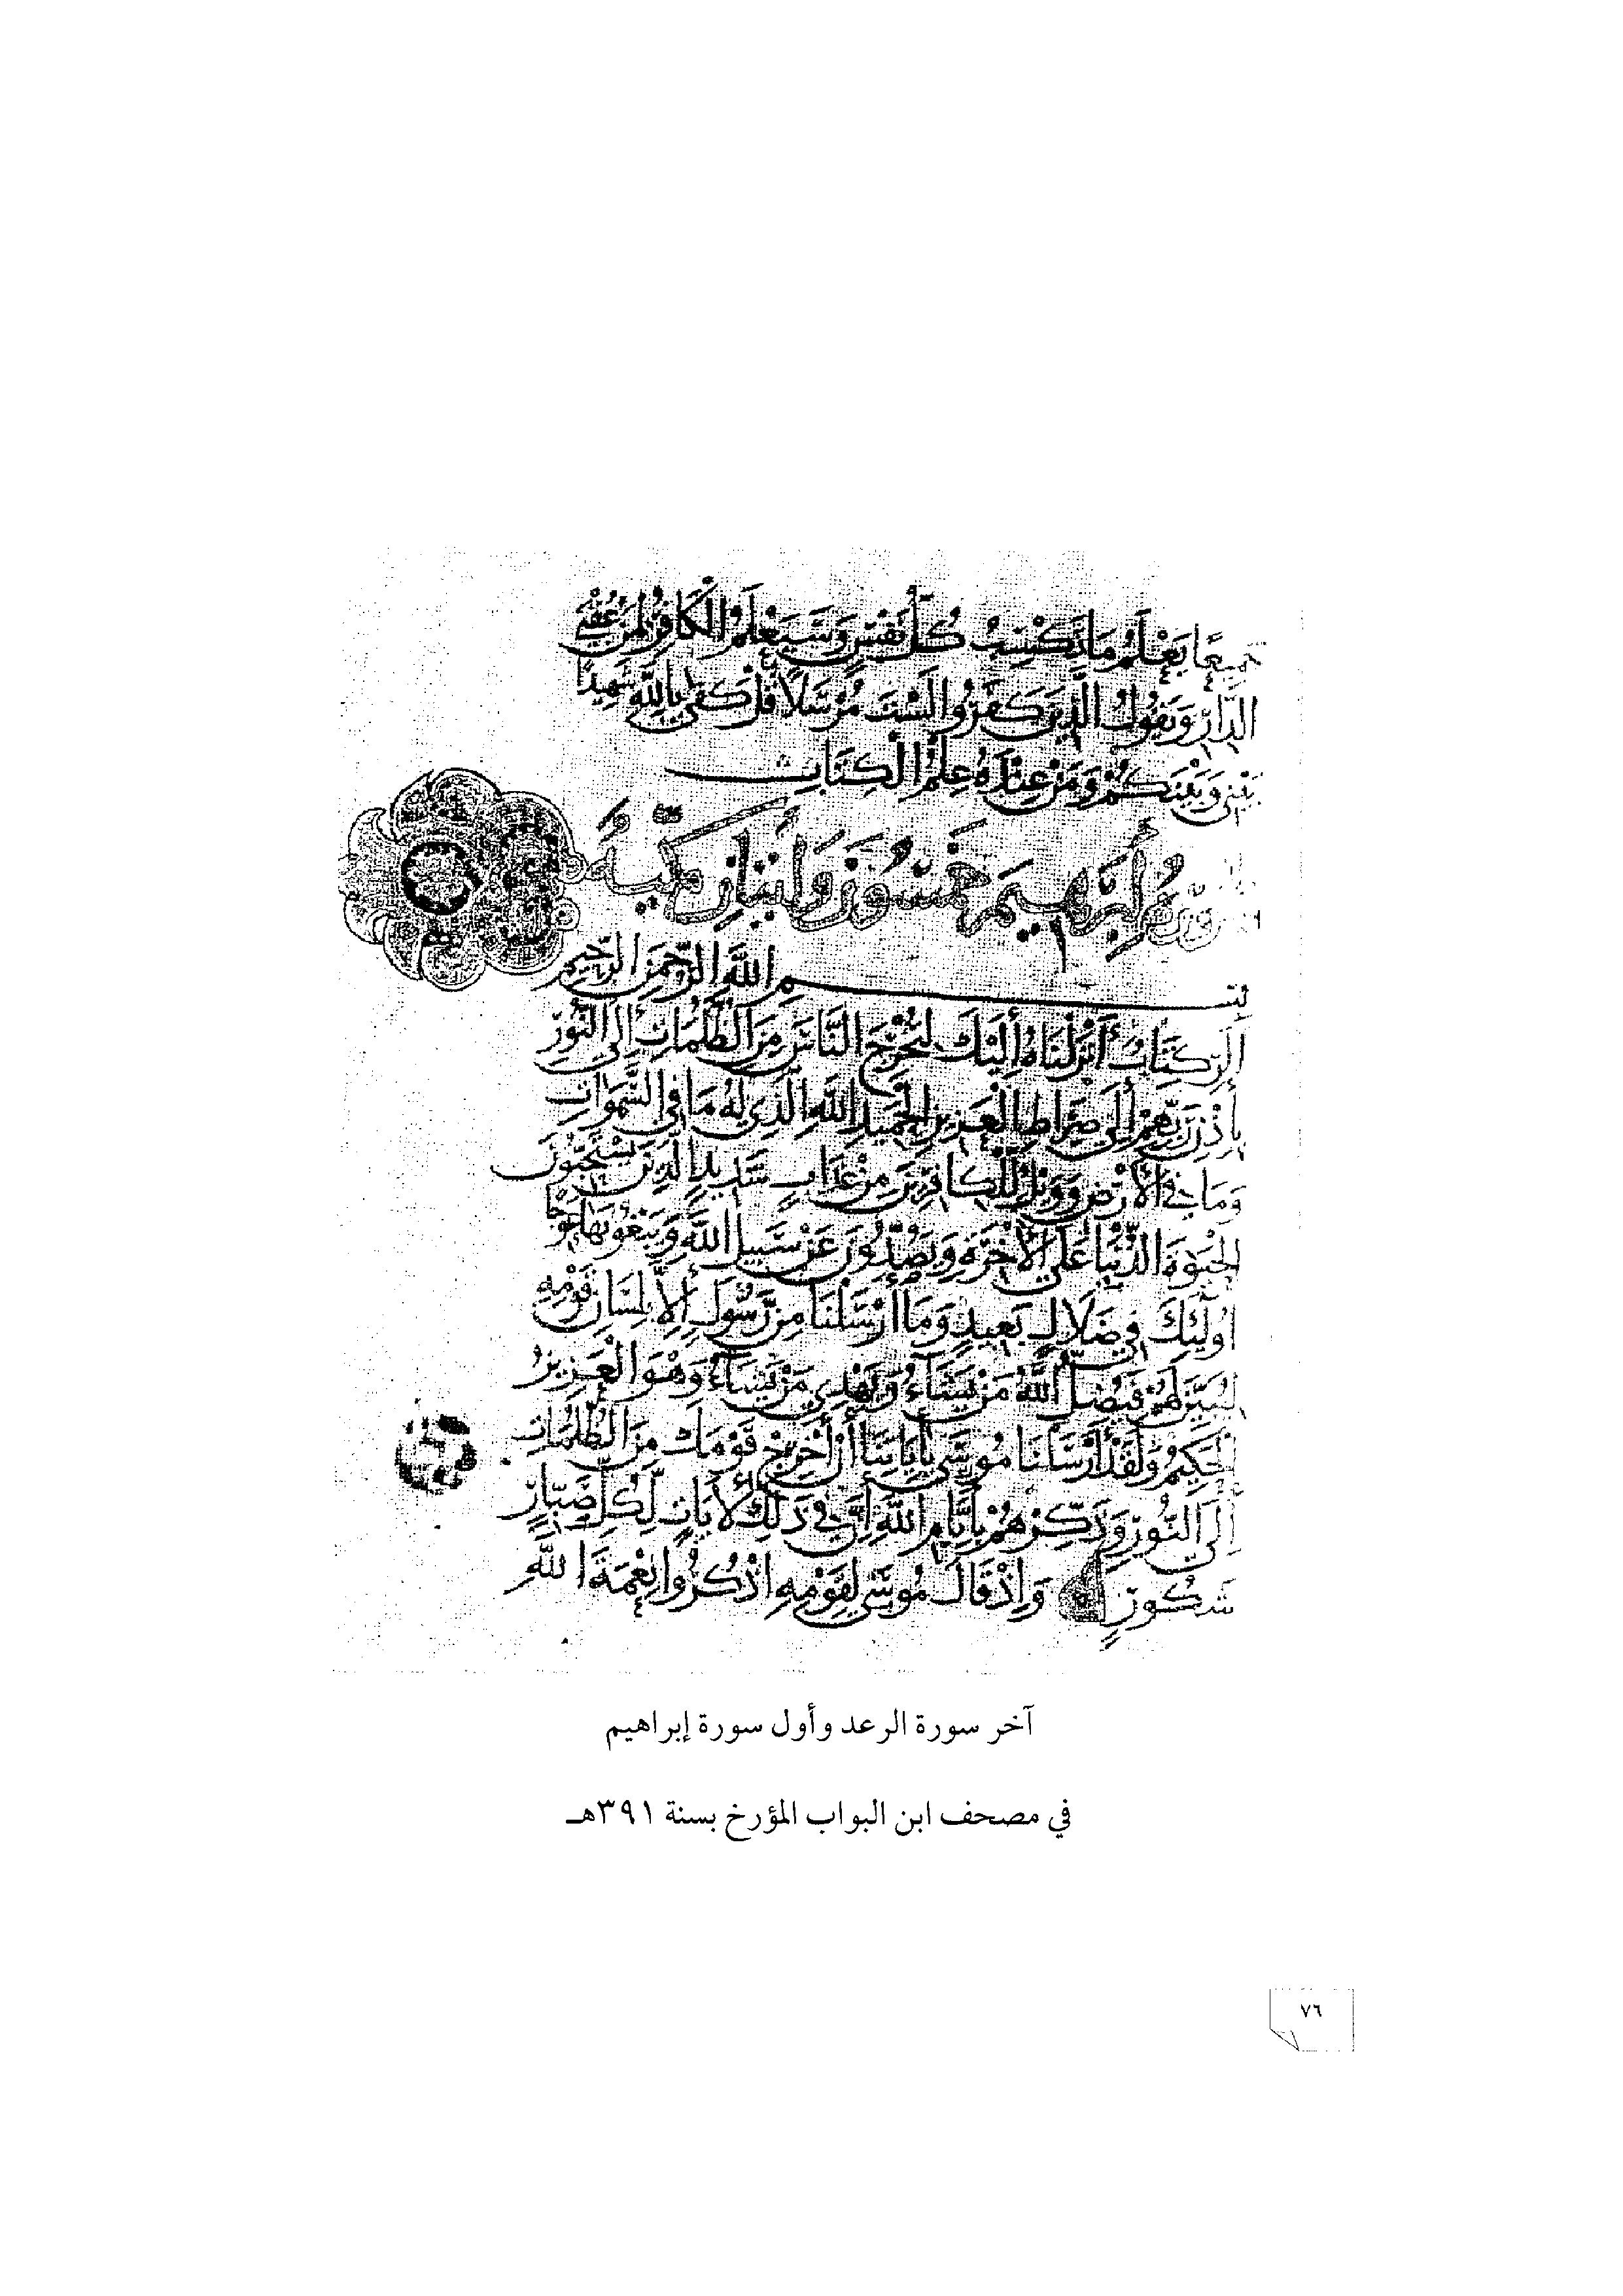 جَمِيعًا يَعْلَمُ مَا تَكْسِبُ كُلُّ نَفْسٍ وَسَيَعْلَمُ الْكَافِرُ لِمَنْ عُقْبَى
الدَّارِ وَيَقُولُ الَّذِينَ كَفَرُوا لَسْتَ مُرْسَلًا قُلْ كَفَى بِاللَّهِ شَهِيدًا
بَيْنِي وَبَيْنَكُمْ وَمَنْ عِنْدَهُ عِلْمُ الْكِتَابِ
سُورَةُ إِبْرَهِيمَ خَمْسُونَ وَاثْنَتَانِ مَكِّيَّةٌ
بِسْمِ اللَّهِ الرَّحْمَنِ الرَّحِيمِ
الر كِتَابٌ أَنْزَلْنَاهُ إِلَيْكَ لِتُخْرِجَ النَّاسَ مِنَ الظُّلُمَاتِ إِلَى النُّورِ
بِإِذْنِ رَبِّهِمْ إِلَى صِرَاطِ الْعَزِيزِ الْحَمِيدِ اللَّهِ الَّذِي لَهُ مَا فِي السَّمَوَاتِ
وَمَا فِي الْأَرْضِ وَوَيْلٌ لِلْكَافِرِينَ مِنْ عَذَابٍ شَدِيدٍ الَّذِينَ يَسْتَحِبُّونَ
الْحَيَوةَ الدُّنْيَا عَلَى الْآخِرَةِ وَيَصُدُّونَ عَنْ سَبِيلِ اللَّهِ وَيَبْغُونَهَا عِوَجًا
أُولَئِكَ فِي ضَلَالٍ بَعِيدٍ وَمَا أَرْسَلْنَا مِنْ رَسُولٍ إِلَّا بِلِسَانِ قَوْمِهِ
لِيُبَيِّنَ لَهُمْ فَيُضِلُّ اللَّهُ مَنْ يَشَاءُ وَيَهْدِي مَنْ يَشَاءُ وَهْوَ الْعَزِيزُ
الْحَكِيمُ وَلَقَدْ أَرْسَلْنَا مُوسَى بِآيَاتِنَا أَنْ أَخْرِجْ قَوْمَكَ مِنَ الظُّلُمَاتِ
إِلَى النُّورِ وَذَكِّرْهُمْ بِأَيَّامِ اللَّهِ إِنَّ فِي ذَلِكَ لَآيَاتٍ لِكُلِّ صَبَّارٍ
شَكُورٍ وَإِذْ قَالَ مُوسَى لِقَوْمِهِ اذْكُرُوا نِعْمَةَ اللَّهِ
آخر سورة الرعد وأول سورة إبراهيم
في مصحف ابن البواب المؤرخ بسنة ٣٩١هـ
٧٦